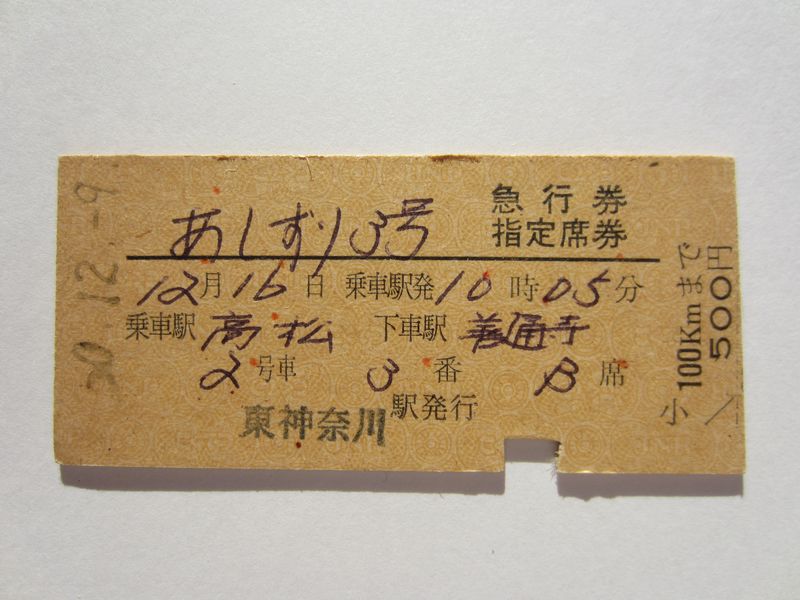 50.12.-9.
あしずり3号
急行券
指定席券
12月16日 乗車駅発10時05分
乗車駅 高松 下車駅 善通寺
2号車 3番 B席
東神奈川駅発行
100Kmまで 500円
小